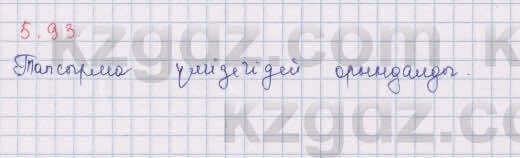 kzgdz.com
5.93
Тапсырма үлгідегідей орындалды.
kzgdz.com